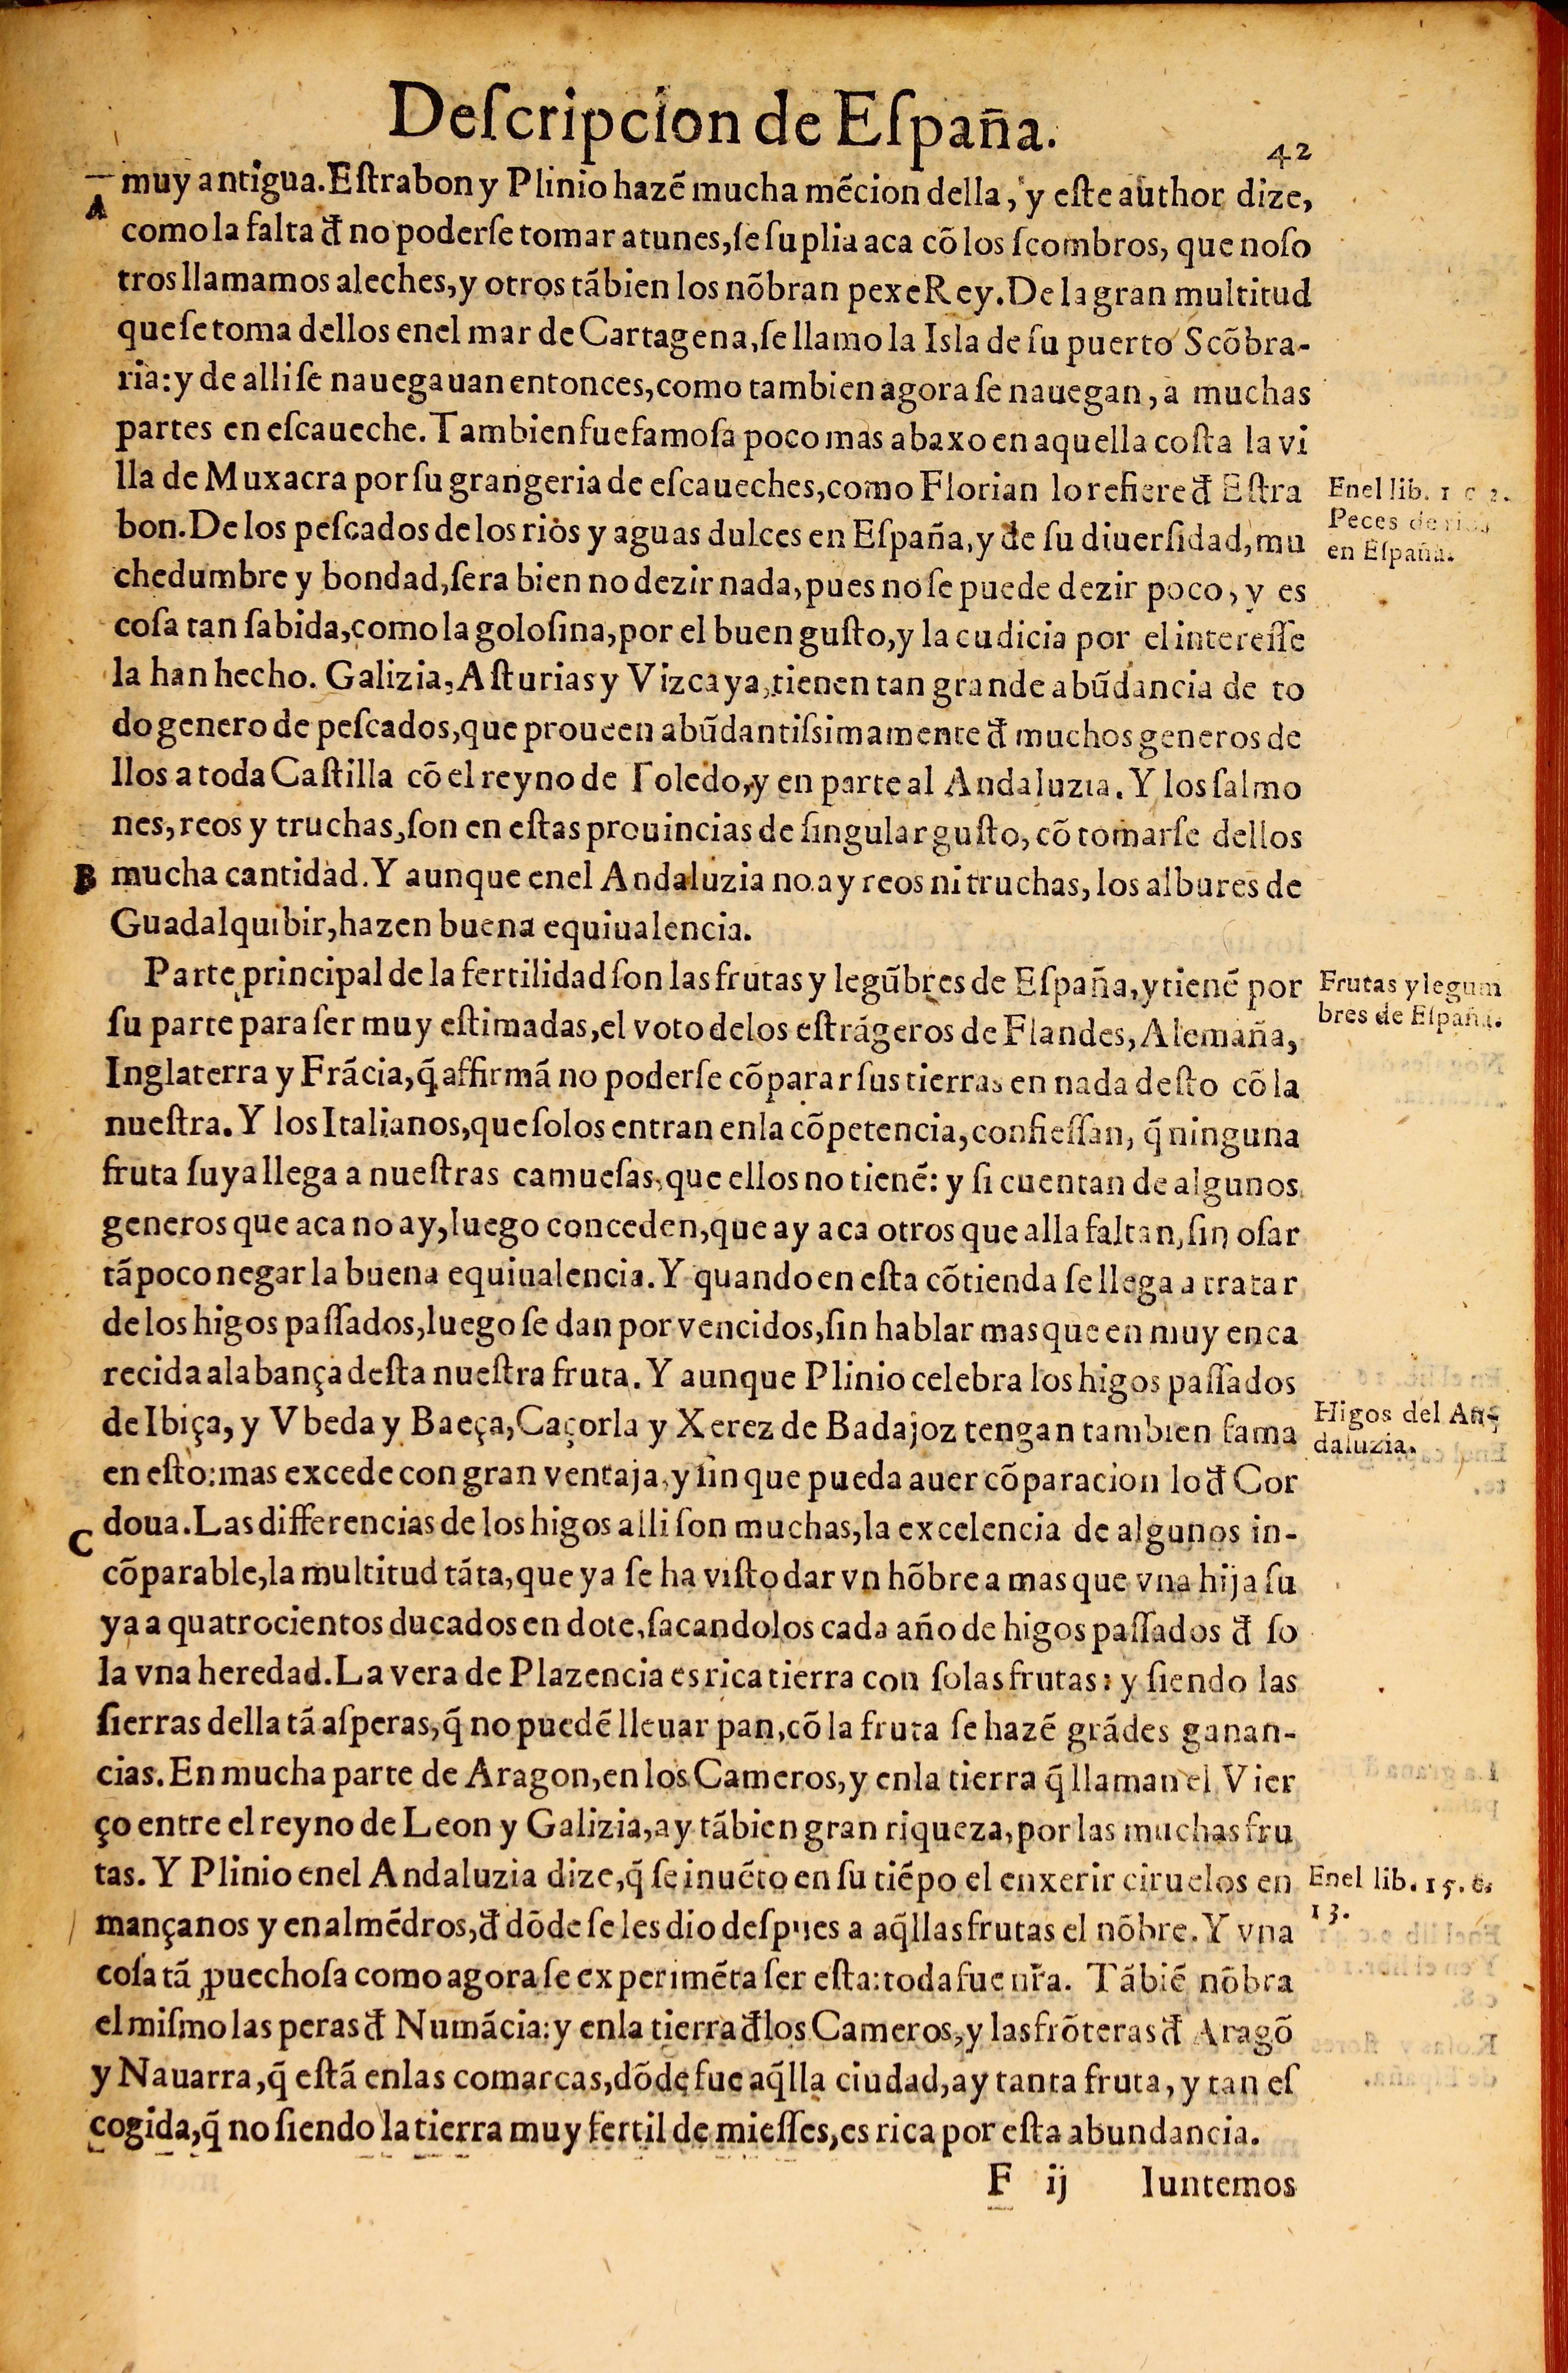 Deſcripcion de Eſpaña.
42
A
muy antigua. Eſtrabon y Plinio hazẽ mucha mẽcion della, y eſte author dize,
como la falta đ no poderſe tomar atunes, ſe ſuplia aca cõ los ſcombros, que noſo
tros llamamos aleches, y otros tãbien los nõbran pexe Rey. De la gran multitud
que ſe toma dellos enel mar de Cartagena, ſe llamo la Isla de ſu puerto Scõbra-
ria: y de alli ſe nauegauan entonces, como tambien agora ſe nauegan, a muchas
partes en eſcaueche. Tambien fue famoſa poco mas abaxo en aquella coſta la vi
lla de Muxacra por ſu grangeria de eſcaueches, como Florian lo refiere đ Eſtra
bon. De los peſcados de los rios y aguas dulces en Eſpaña, y de ſu diuerſidad, mu
chedumbre y bondad, ſera bien no dezir nada, pues no ſe puede dezir poco, y es
coſa tan ſabida, como la goloſina, por el buen guſto, y la cudicia por el intereſſe
la han hecho. Galizia, Aſturias y Vizcaya, tienen tan grande abũdancia de to
do genero de peſcados, que proueen abũdantiſsimamente đ muchos generos de
llos a toda Caſtilla cõ el reyno de Toledo, y en parte al Andaluzia. Y los ſalmo
nes, reos y truchas, ſon en eſtas prouincias de ſingular guſto, cõ tomarſe dellos
B
mucha cantidad. Y aunque enel Andaluzia no ay reos ni truchas, los albures de
Guadalquibir, hazen buena equiualencia.
Enel lib. 1
Peces de rios
en Eſpaña.
Parte principal de la fertilidad ſon las frutas y legũbres de Eſpaña, y tienẽ por
ſu parte para ſer muy eſtimadas, el voto delos eſtrãgeros de Flandes, Alemaña,
Inglaterra y Frãcia, q̃ affirmã no poderſe cõparar ſus tierras en nada deſto cõ la
nueſtra. Y los Italianos, que ſolos entran enla cõpetencia, confieſſan, q̃ ninguna
fruta ſuya llega a nueſtras camueſas, que ellos no tienẽ: y ſi cuentan de algunos
generos que aca no ay, luego conceden, que ay aca otros que alla faltan, ſin oſar
tãpoco negar la buena equiualencia. Y quando en eſta cõtienda ſe llega a tratar
de los higos paſſados, luego ſe dan por vencidos, ſin hablar mas que en muy enca
recida alabança deſta nueſtra fruta. Y aunque Plinio celebra los higos paſſados
de Ibiça, y Vbeda y Baeça, Caçorla y Xerez de Badajoz tengan tambien fama
en eſto: mas excede con gran ventaja, y ſin que pueda auer cõparacion lo đ Cor
C
doua. Las differencias de los higos alli ſon muchas, la excelencia de algunos in-
cõparable, la multitud tãta, que ya ſe ha viſto dar vn hõbre a mas que vna hija ſu
ya a quatrocientos ducados en dote, ſacandolos cada año de higos paſſados đ ſo
la vna heredad. La vera de Plazencia es rica tierra con ſolas frutas: y ſiendo las
ſierras della tã aſperas, q̃ no puedẽ lleuar pan, cõ la fruta ſe hazẽ grãdes ganan-
cias. En mucha parte de Aragon, en los Cameros, y enla tierra q̃ llaman el Vier
ço entre el reyno de Leon y Galizia, ay tãbien gran riqueza, por las muchas fru
tas. Y Plinio enel Andaluzia dize, q̃ ſe inuẽto en ſu tiẽpo el enxerir ciruelos en
mançanos y en almẽdros, đ dõde ſe les dio deſpues a aq̃llas frutas el nõbre. Y vna
coſa tã ꝓuechoſa como agora ſe experimẽta ſer eſta: toda fue nr̃a. Tãbiẽ nõbra
el miſmo las peras đ Numãcia: y enla tierra đlos Cameros, y las frõteras đ Aragõ
y Nauarra, q̃ eſtã enlas comarcas, dõde fue aq̃lla ciudad, ay tanta fruta, y tan eſ
cogida, q̃ no ſiendo la tierra muy fertil de mieſſes, es rica por eſta abundancia.
Frutas y legum
bres de Eſpaña.
Higos del An-
daluzia.
Enel lib. 15. c.
13.
F ij Iuntemos